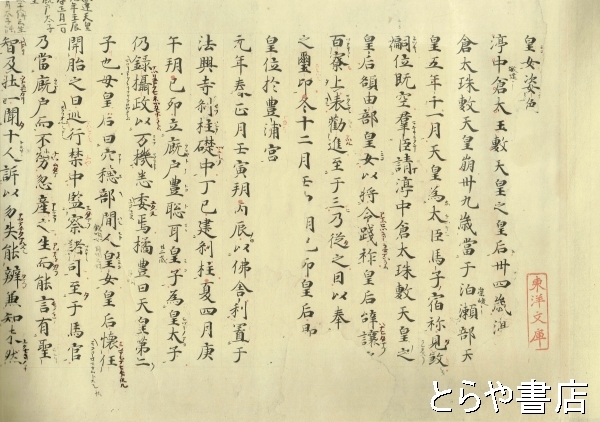 皇女姿色
渟中倉太玉敷天皇之皇后卅四歳渟
倉太珠敷天皇崩卅九歳當于泊瀬部天
皇五年十一月天皇為大臣馬子宿祢見致
嗣位既空群臣請渟中倉太珠敷天皇之
皇后額田部皇女以將令踐祚皇后辭讓
百寮上表勸進至于三乃從之因以奉
之璽印冬十二月壬 月己卯皇后即
皇位於豊浦宮
元年春正月壬寅朔丙辰以佛舎利置于
法興寺刹柱礎中丁巳建刹柱夏四月庚
午朔己卯立廐戸豊聡耳皇子為皇太子
仍録攝政以万機悉委焉橘豊日天皇第二
子也母皇后曰穴穂部間人皇女皇后懐
開胎之日巡行禁中監察諸司至于馬官
乃當廐戸而不勞忽産之生而能言有聖
智及壯一聞十人訴以勿失能辨兼知未然
東洋文庫
とらや書店